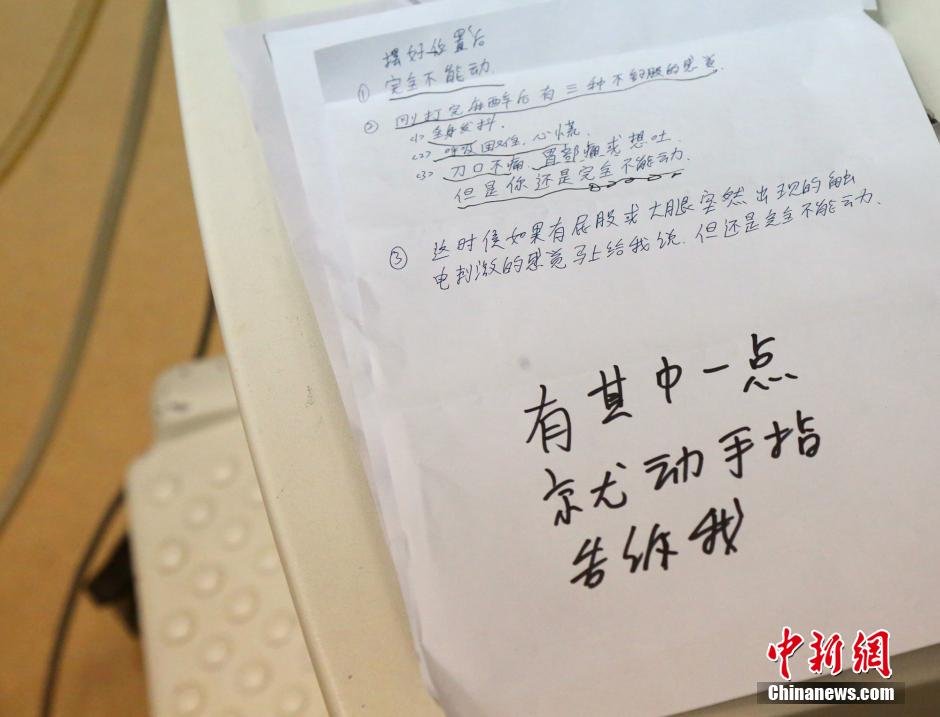 摆好位置后
① 完全不能动.
② 刚打完麻西车后有三种不舒服的思觉.
<1> 全身发抖.
<2> 呼吸困难、心慌.
<3> 刀口不痛、胃部痛或想吐.
但是你还是完全不能动.
③ 这时侯如果有屁股或大腿突然出现的触
电刺激的思觉马上给我说.但还是完全不能动.
有其中一点
就动手指
告你我
中新網
Chinanews.com